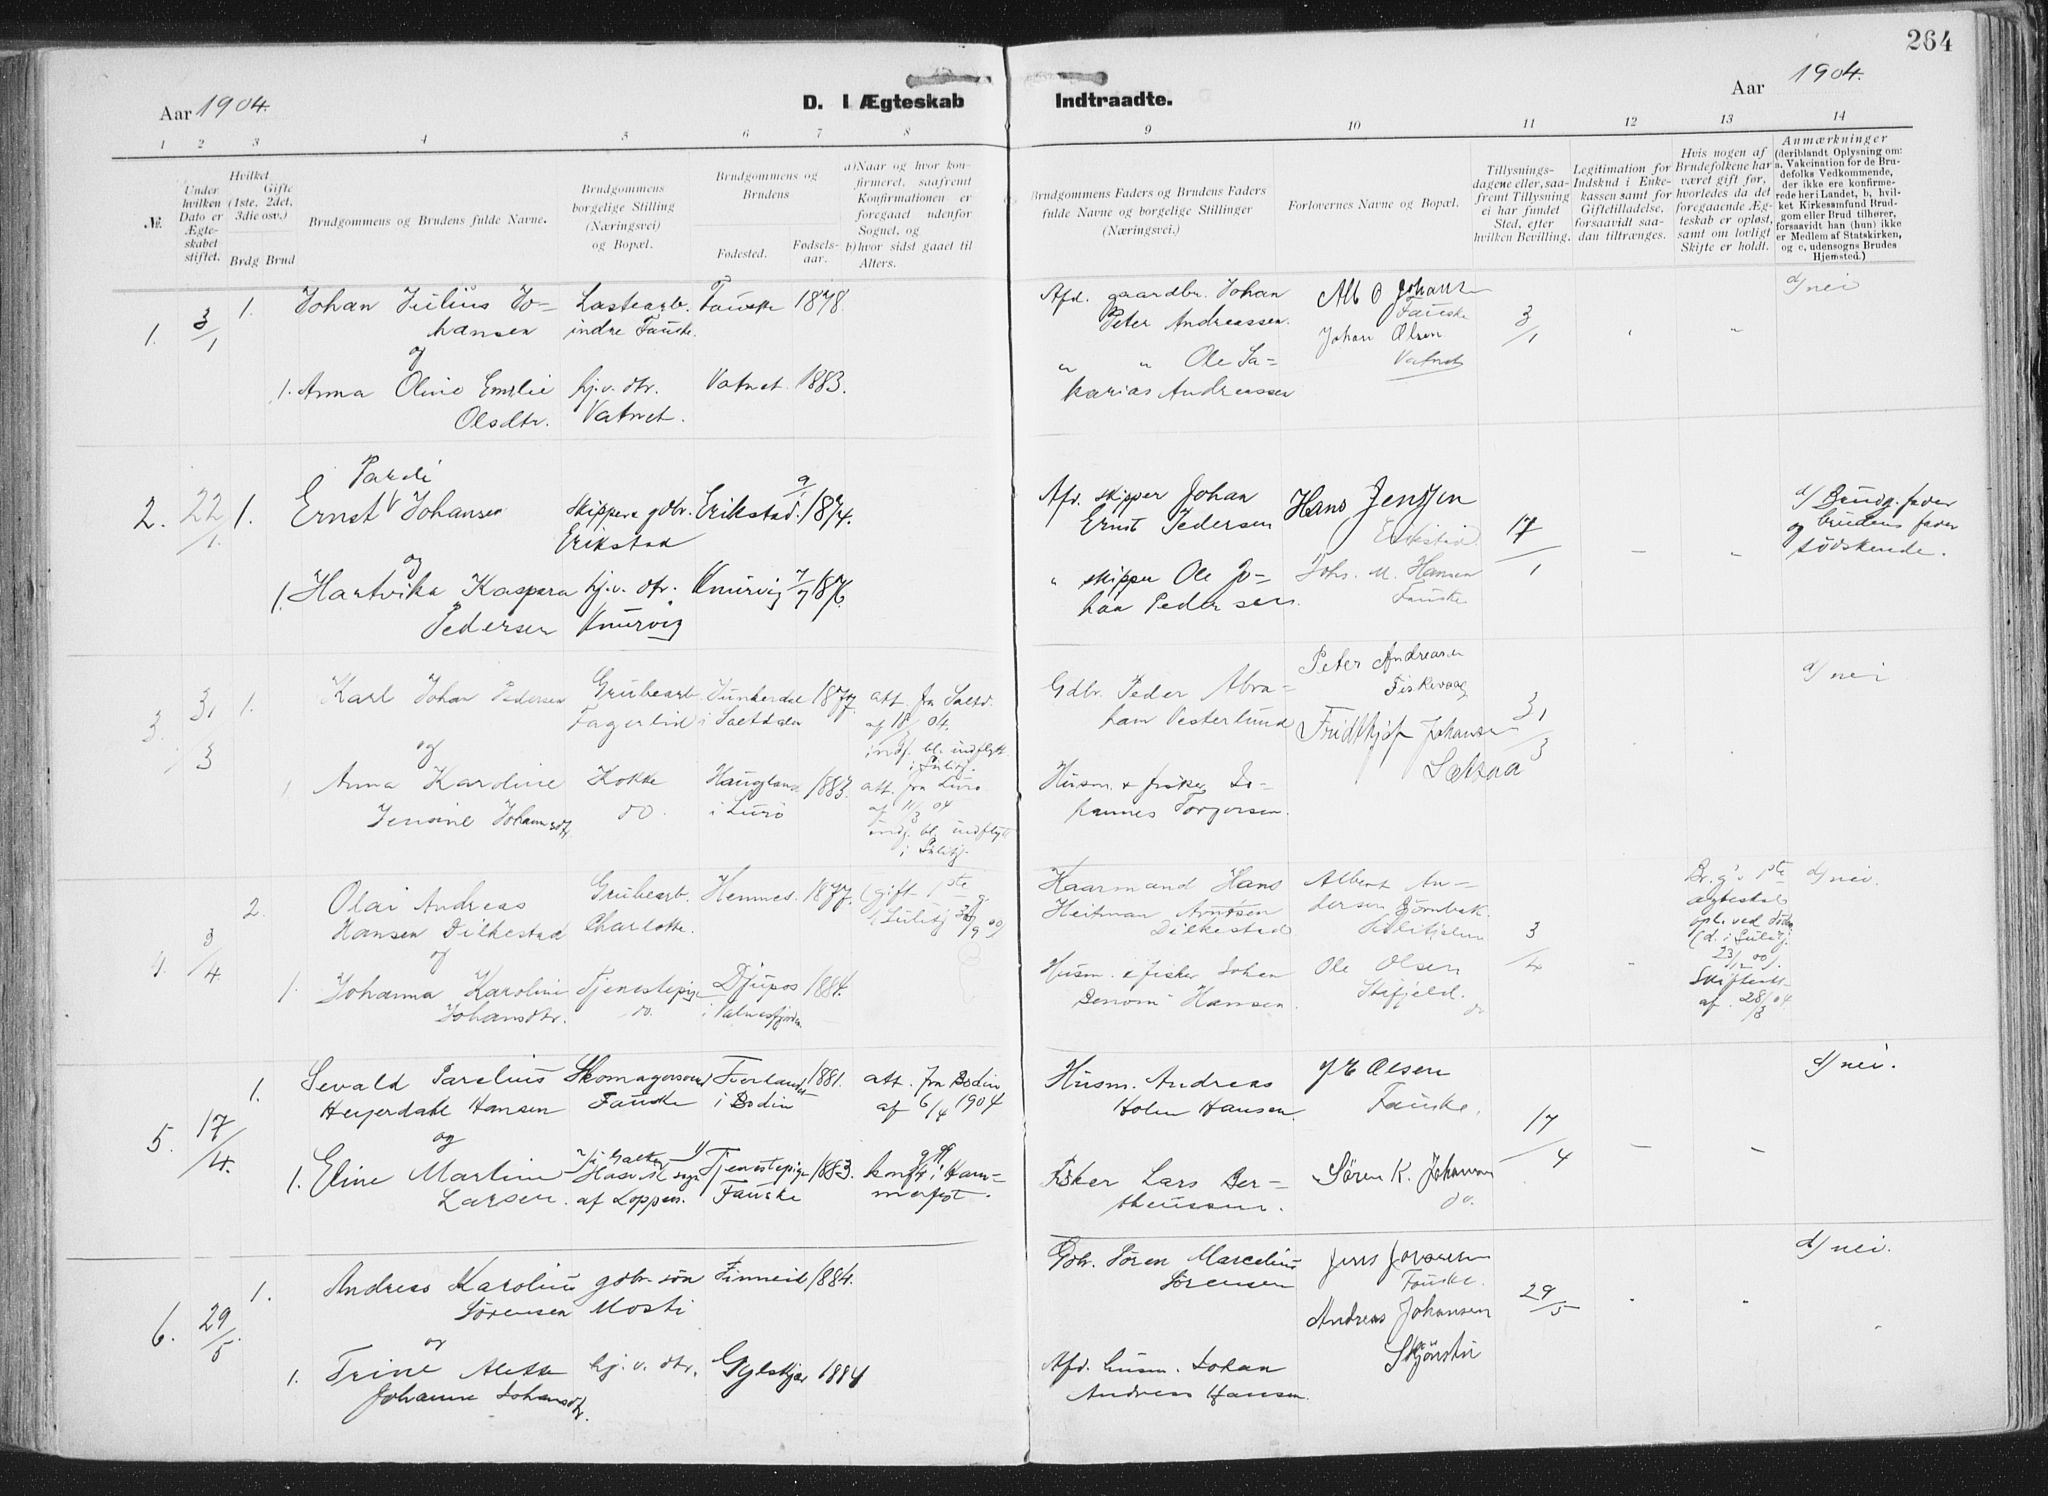 264
Aar 1904.
D. I Ægteskab Indtraadte.
Aar 1904.
1 2 3 4 5 6 7 8 9 10 11 12 13 14
№.
Under hvilken Dato er Ægteskabet stiftet.
Hvilket Gifte (1ste, 2det, 3die osv.)
Brdg Brud
Brudgommens og Brudens fulde Navne.
Brudgommens borgelige Stilling (Næringsvei) og Bopæl.
Brudgommens og Brudens
Fødested.
Fødselsaar.
a) Naar og hvor konfirmeret, saafremt Konfirmationen er foregaaet udenfor Sognet, og
b) hvor sidst gaaet til Alters.
Brudgommens Faders og Brudens Faders fulde Navne og borgelige Stillinger (Næringsvei.)
Forlovernes Navne og Bopæl.
Tillysningsdagene eller, saafremt Tillysning ei har fundet Sted, efter hvilken Bevilling.
Legitimation for Indskud i Enkekassen samt for Giftetilladelse, forsaavidt saadan tiltrænges.
Hvis nogen af Brudefolkene har været gift før, hvorledes da det foregaaende Ægteskab er opløst, samt om lovligt Skifte er holdt.
Anmærkninger (deriblandt Oplysning om: a. Vakcination for de Brudefolks Vedkommende, der ikke ere konfirmerede her i Landet, b, hvilket Kirkesamfund Brudgom eller Brud tilhører, forsaavidt han (hun) ikke er Medlem af Statskirken, og c, udensogns Brudes Hjemsted.)
1. 3/1 1. Johan Julius Johansen Lastearb. indre Fauske. Fauske 1878. Afd. gaardbr. Johan Peter Andreassen. Alb O Johansen Fauske 3/1 d/ nei
og
1. Anna Oline Emilie Olsdtr. hj.v. dtr. Vatnet. Vatnet. 1883. " " Ole Sakarias Andreassen Johan Olsen Vatnet
2. 22/1. 1. Ernst Johansen Skipper gdbr. Erikstad Erikstad. 1874. Afd. skipper Johan Ernst Pedersen Hans Jenssen Erikstad. 17/1 - " d/ Brudg. fader og brudens fader södskende.
og
1. Hartvika Kaspara Pedersen hj.v. dtr. Knurvig Knurvig 7/7 1876. " skipper Ole Johan Pedersen. Johs. M. Hansen Fauske
3. 31/3 1. Karl Johan Pedersen Grubearb. Fagerlid Junkerdal i Saltdalen 1877. att. fra Saltd. af 18/3 04. indf. bl. indflytt i Sulitj. Gdbr. Peder Abraham Vesterlund Peter Andreasen Fiskevaag 31/3 d/ nei
og
1 Anna Karoline Jensine Johannesdtr. Kokke do. Haugland i Lurö 1883. att. fra Lurö af 11/3 04 indf. bl. indflytt i Sulitj. Husm. & fisker Johannes Torgersen. Fridthjof Johansen Laksaa
4. 3/4. 2. Olai Andreas Hansen Dilkestad Grubearb. Charlotta. Hemnes. 1877. (gift 1ste g. i Sulitj. Kaarmand Hans Heitman Arntsen Dilkestad Albert Andersen Björnbak. Sulitjelma 3/4 Br.g's 1ste ægteskab opl. ved döden (d. i Sulitj. 23/12 00). Skifteatt. af 28/3 04. d/ nei.
og
1. Johanna Karoline Johansdtr. Tjenestepige do. Djupos i Valnesfjorden 1884. Husm. & fisker Johan Benoni Hansen. Ole Olsen Stefjeld. do
5. 17/4. 1. Sevald Parelius Heyerdahl Hansen Skomagersvend Fauske Fjerlandet i Bodin 1881. att. fra Bodin af 6/4 1904 Husm. Andreas Holm Hansen. Olsen Fauske. 17/4 - - d/ nei.
og
1. Eline Martine Larsen. af Loppen. Tjenestepige Fauske 1883. konf. i Hammerfest. Fisker Lars Bertheussen. Sören K. Johansen do.
6. 29/5. 1. Andreas Karolius Sörensen gdbr. sön Mosti Finneid 1884. Gdbr. Sören Marcelius Sörensen Jens Fauske. 29/5 d/ nei.
og
1. Trine Aletta Johanne Johansdtr. hj. v. dtr. Gylskjær 1884 Afd. husm. Johan Andreas Hansen. Andreas Johansen Skjönsti